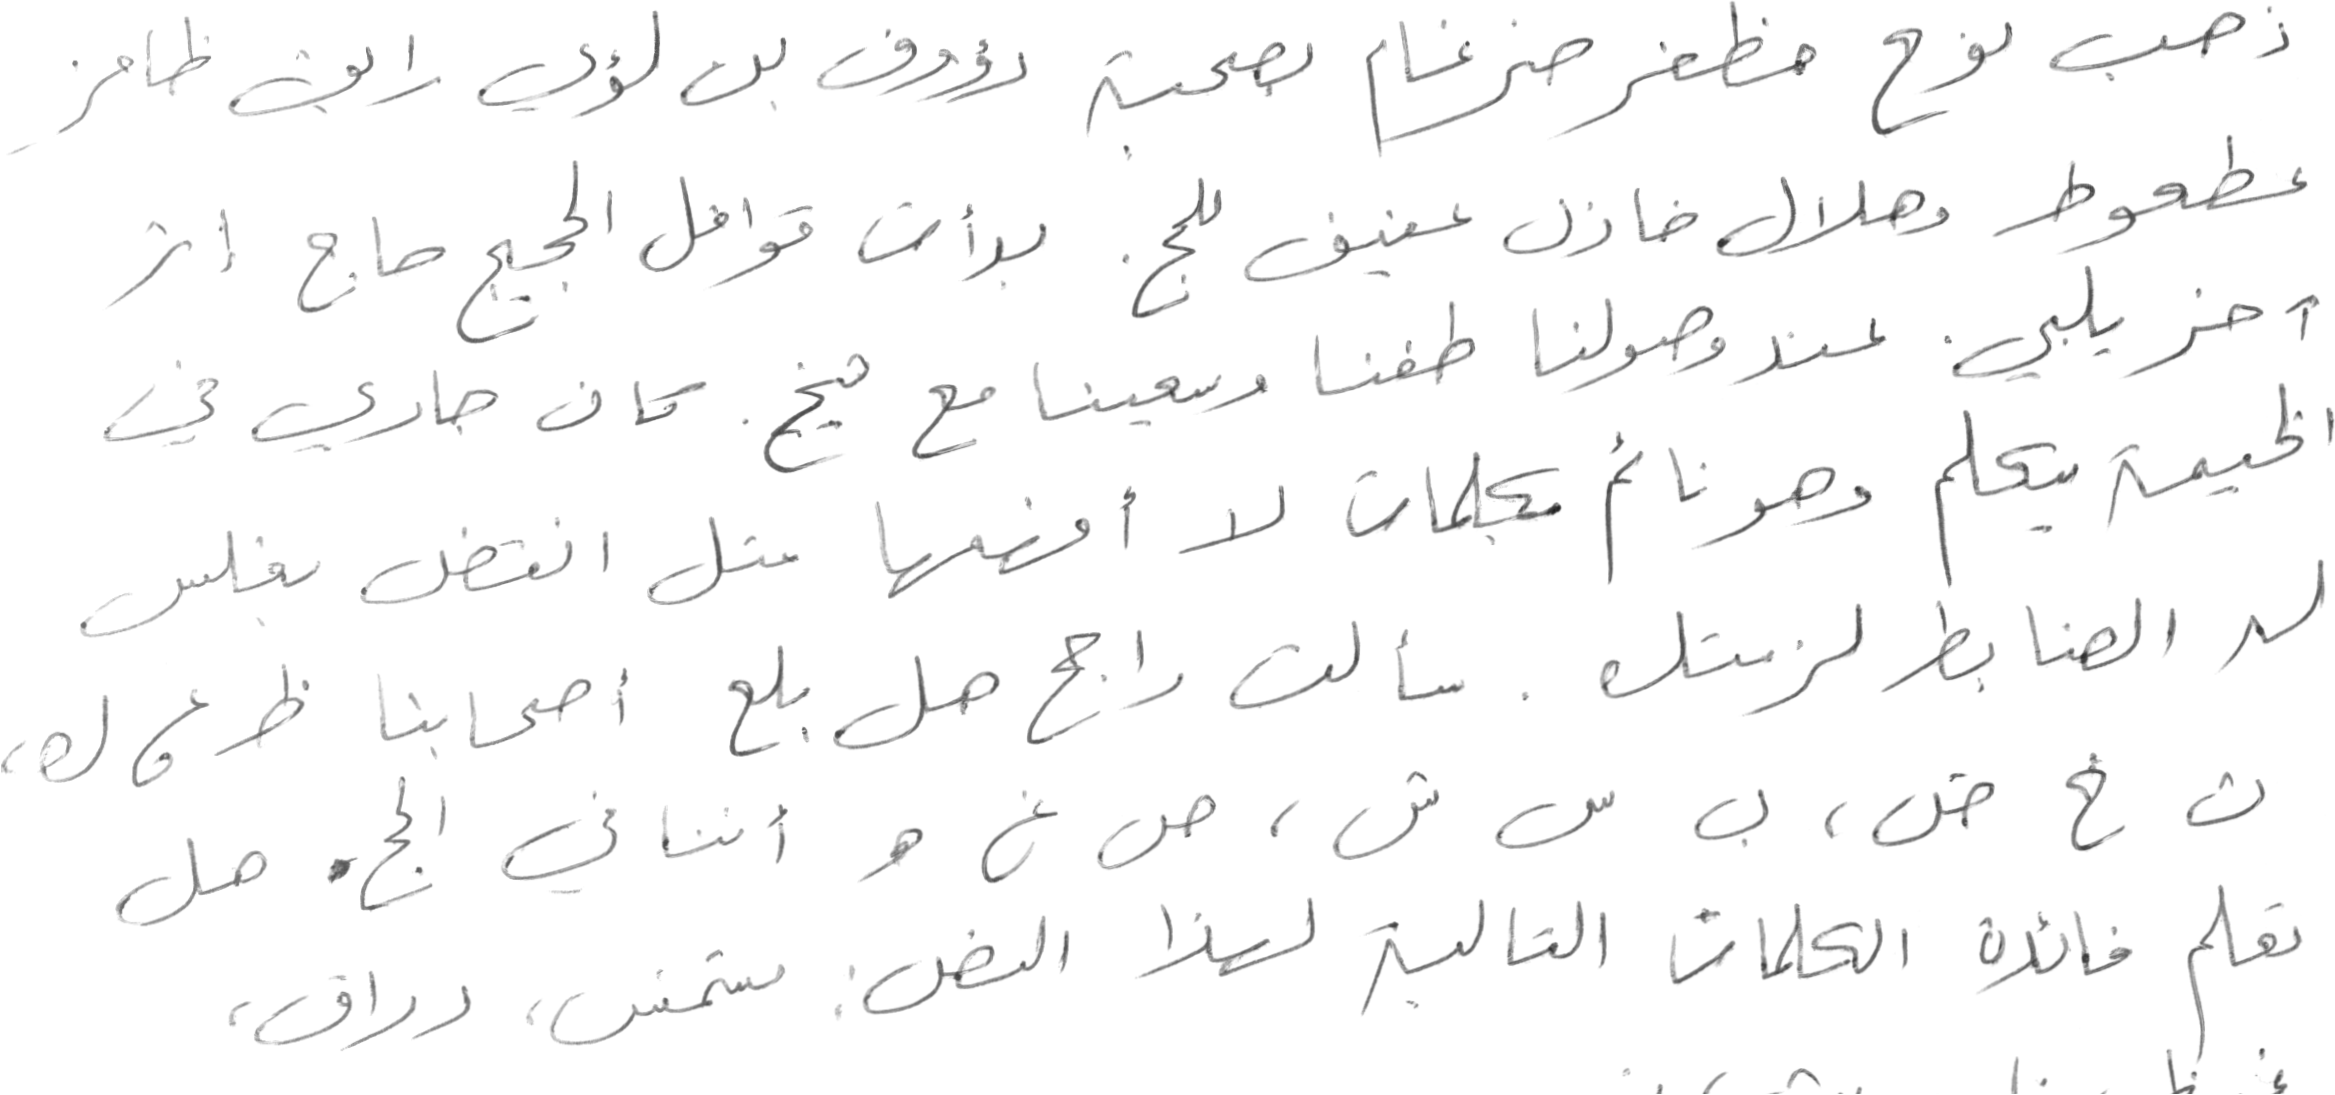 ذهب نوح مظفر ضرغام بصحبة رؤوف بن لؤي رايق ظافر
عطعوط وهلال خازن عفيف للحج. بدأت قوافل الحجيج حاج إثر
آخر يلبي. عند وصولنا طفنا وسعينا مع شيخ. كان جاري في
الخيمة يتكلم وهو نائم بكلمات لا أفهمها مثل انقض بغلس
لد الضابط لزمتك. سألت راجح هل بلع أصحابنا ظ غ ك ه،
ث خ ض، ب س ش، ص غ و أثنا في الحج. هل
تعلم فائدة الكلمات التالية لهذا النص: مستمش، دراق،